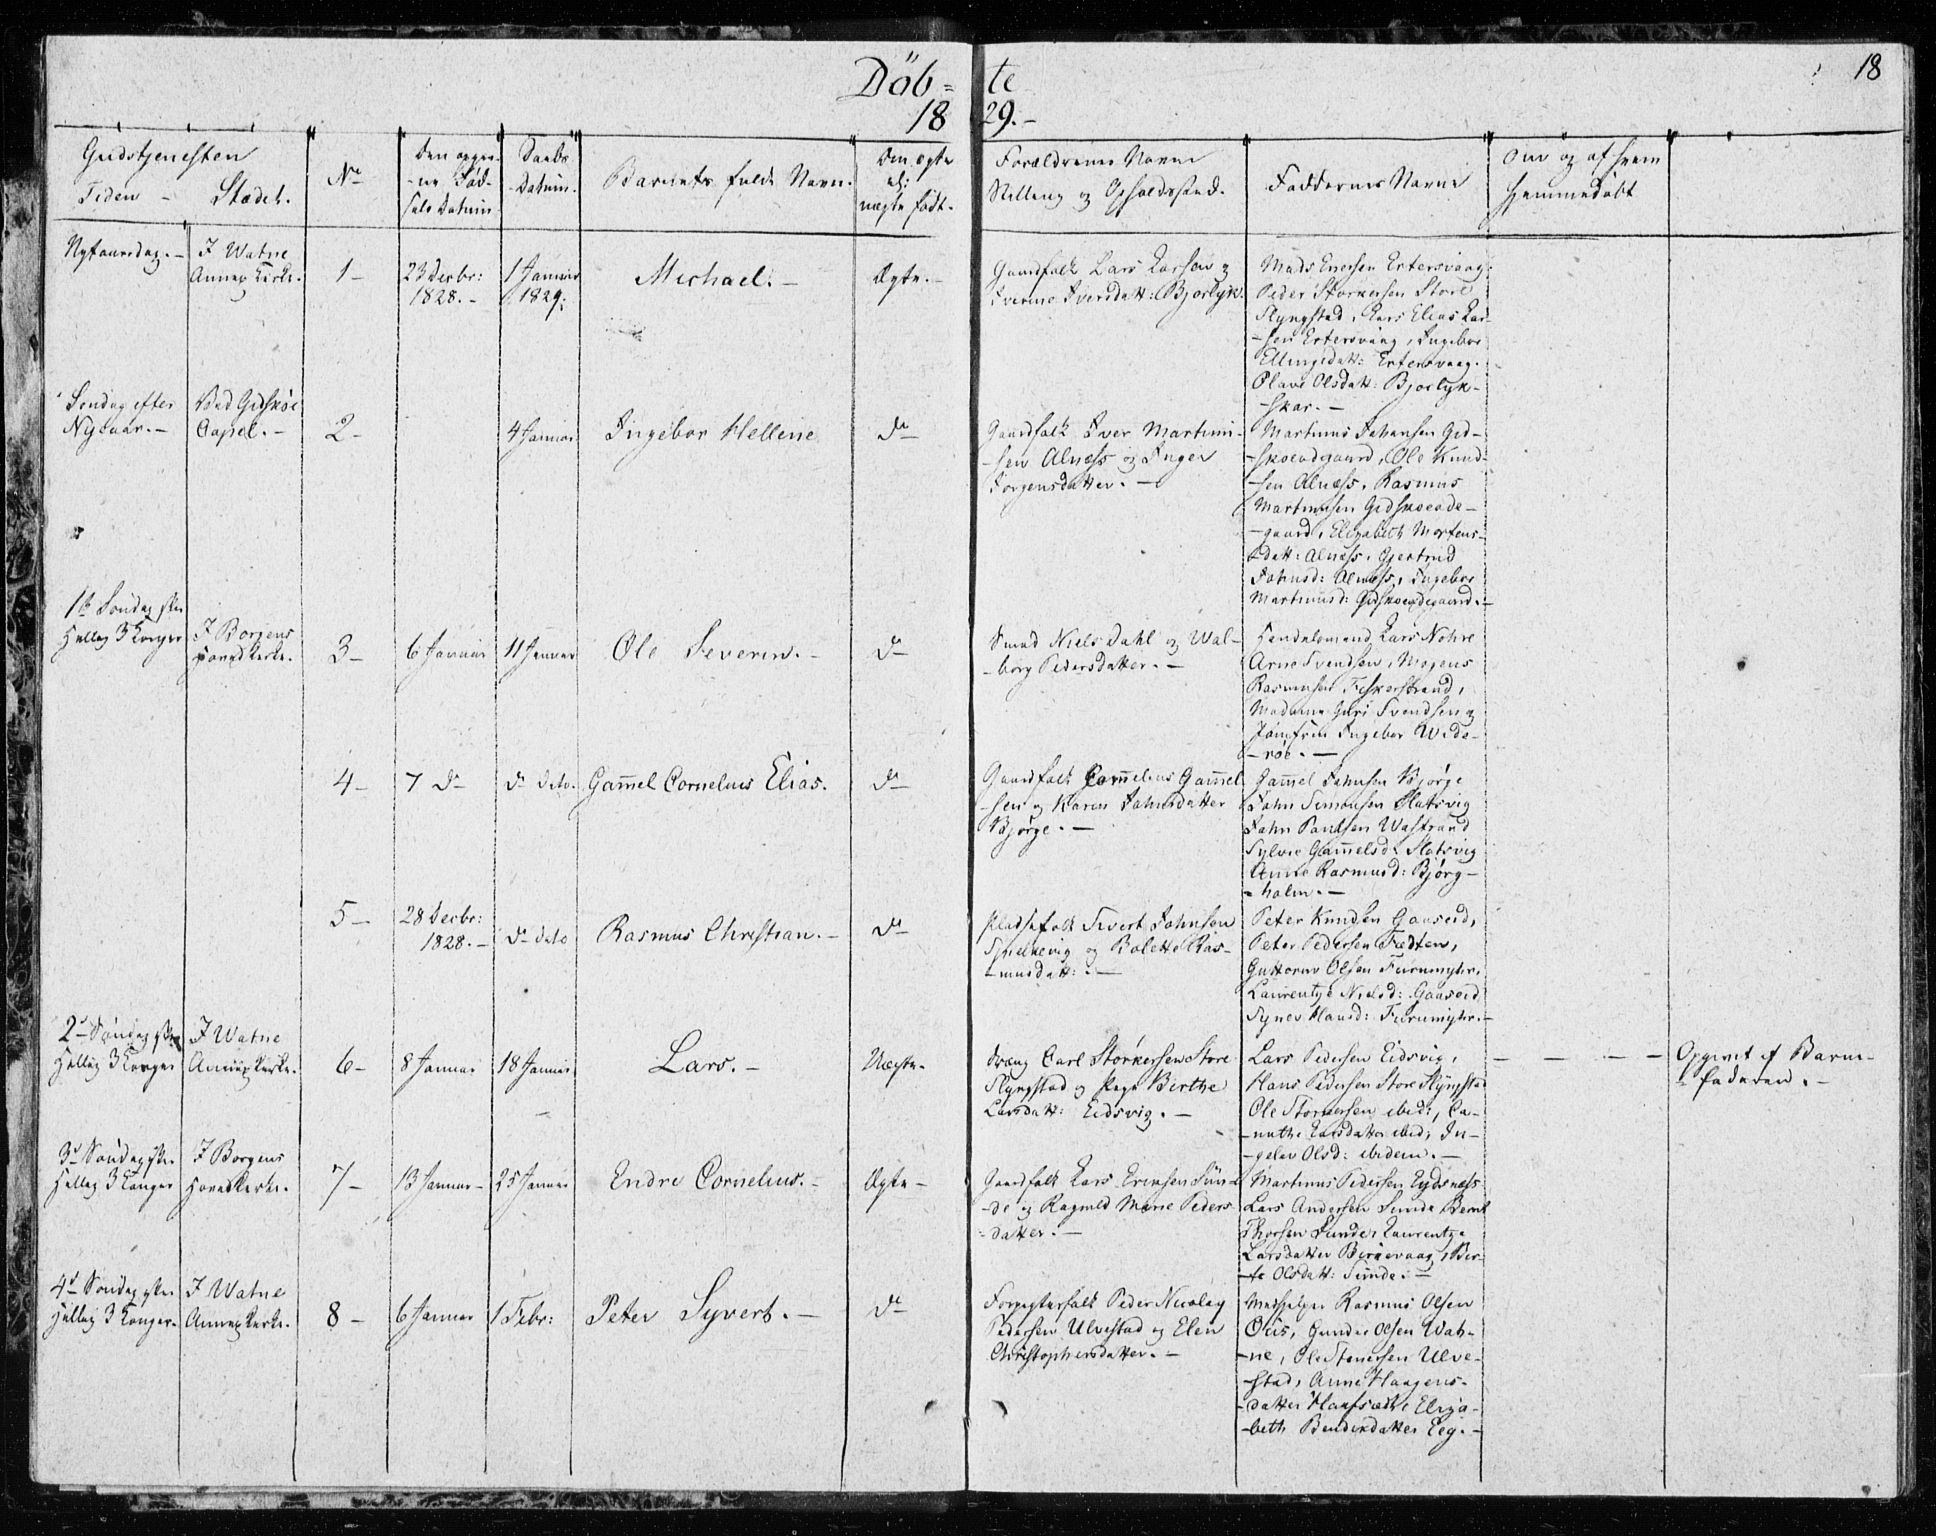 Döb= te
18
18 29.-
Gudstjenesten
Tiden - Stædet.
No
Den opgiv-
-ne Fød-
sels Datum
Daabs
-Datum.
Barnets fulde Navn.
Om ægte
el:
uægte født.
Forældrenes Navne
Stilling og Opholdsstæd.
Faddernes Navne
Om og af hvem
hjemmedøbt
Nytaarsdag.-
I Watne
Annex Kirke.
1-
23 Decbr:
1828.-
1 Januar
1829.
Michael.-
Ægte.-
Gaardfolk Lars Larsen og
Iverine Iversdatt: Bjorlyk.
Mads Enersen Ertersvaag
Peder Storkersen Store
Slyngstad, Lars Elias Lar-
-sen Ertersvaag, Ingebor
Ellingsdatt: Ertersvaag.
Olave Olsdatt: Bjorlyk-
-skar.-
Søndag efter
Nytaar.-
Ved Gidskøe
Capel.-
2-
4 Januar
Ingebor Hellene
Do
Gaardfolk Iver Martini-
-sen Alnæss og Inger
Jorgensdatter.-
Martinus Johansen Gid-
-skoeodgaard, Ole Knud-
-sen Alnæss, Rasmus
Martinusen Gidskoeode-
-gaard, Elizabeth Mortens-
-datt: Alnæss, Gjertrud
Johnsd: Alnæss, Ingebor
Martinusd: Gidskoeodegaard.-
1te Søndag efter
Hellig 3 Konger
I Borgens
Hovedkirke.
3-
6 Januar
11 Januar
Ole Severin.-
Do
Smed Niels Dahl og Wal-
-borg Pedersdatter.-
Handelsmand Lars Nohre
Arne Svendsen, Mogens
Rasmusen Fiskerstrand,
Madame Guri Svendsen og
Jomfrue Ingebor Wide-
-röe.-
4-
7 Do
Do Dato.
Gam̄el Cornelius Elias.
Do
Gaardfolk Cornelius Gam̄el-
-sen og Karen Johnsdatter
Bjørge.-
Gam̄el Johnsen Bjørge
John Simonsen Slatsvig
John Paulsen Wastrand
Sylvie Gam̄elsd: Slatsvig
Anne Rasmusd: Bjørg-
-holm.-
5-
28 Decbr:
1828.-
Do Dato
Rasmus Christian.-
Do
Pladsefolk Sivert Johnsen
Spielkevig og Bolette Ras-
-musdatt:.-
Peter Knudsen Gaaseid,
Peter Pedersen Fedten,
Guttorm Olsen Furumyhr,
Laurentze Nielsd: Gaaseid
Synev Hansd: Furumyhr.-
2den Søndag efter
Hellig 3 Konger
I Watne
Annexkirke.
6-
8 Januar
18 Januar
Lars.-
Uægte.
Dreng Carl Størkersen Store
Slyngstad og Pige Birthe
Larsdatt: Eidsvig.-
Lars Pedersen Eidsvig,
Hans Pedersen Store Slyngstad
Ole Størkersen ibid:, Ca-
-nuthe Larsdatter ibid, In-
-gelev Olsd: ibidem.-
- - - -
Opgivet af Barne-
-faderen.-
3die Søndag efter
Hellig 3 Konger
I Borgens
Hovedkirke.
7-
13 Januar-
25 Januar
Endre Cornelius.-
Ægte-
Gaardfolk Lars Erichsen Sun-
-de og Ragnild Marie Peders
-datter.-
Martinus Pedersen Eydsnæss
Lars Andersen Sunde Bernt
Thorsen Sunde, Laurentze
Larsdatter Birkevaag, Ber-
-te Olsdatt: Sunde.-
4de Søndag efter
Hellig 3 Konger.
I Watne
Annexkirke.
8-
6 Januar
1 Febr:
Peter Syvert.-
Do
Forpagterfolk Peder Nicolay
Pedersen Ulvestad og Elen
Christophersdatter.-
Medhjelper Rasmus Olsen
Øiis, Gunder Olsen Wat-
-ne, Ole Stenersen Ulve-
-stad, Anne Haagens-
-datter Hanfsæth, Eliza-
-beth Bendixdatter Eeg.-